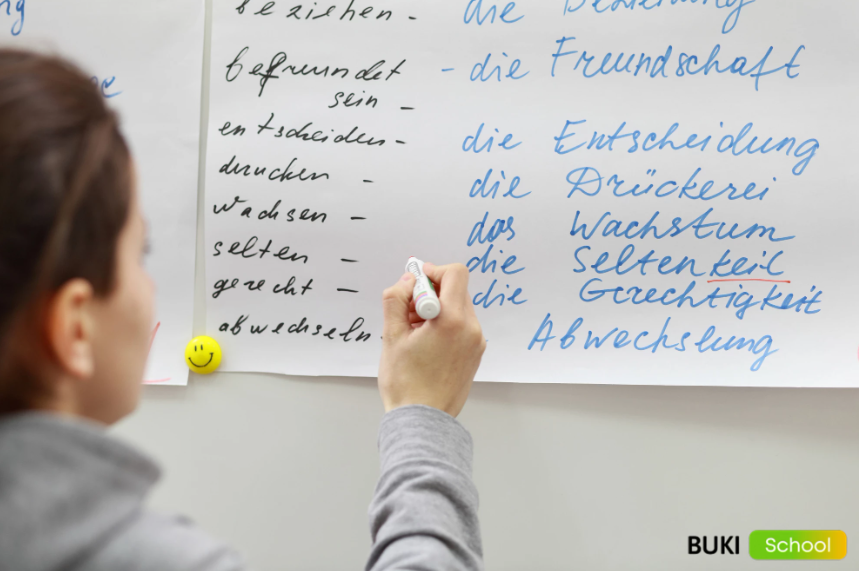 beziehen - die Beziehung
befreundet - die Freundschaft
sein -
entscheiden - die Entscheidung
drucken - die Drückerei
wachsen - das Wachstum
selten - die Seltenkeit
gerecht - die Gerechtigkeit
abwechseln - Abwechslung
BUKI School